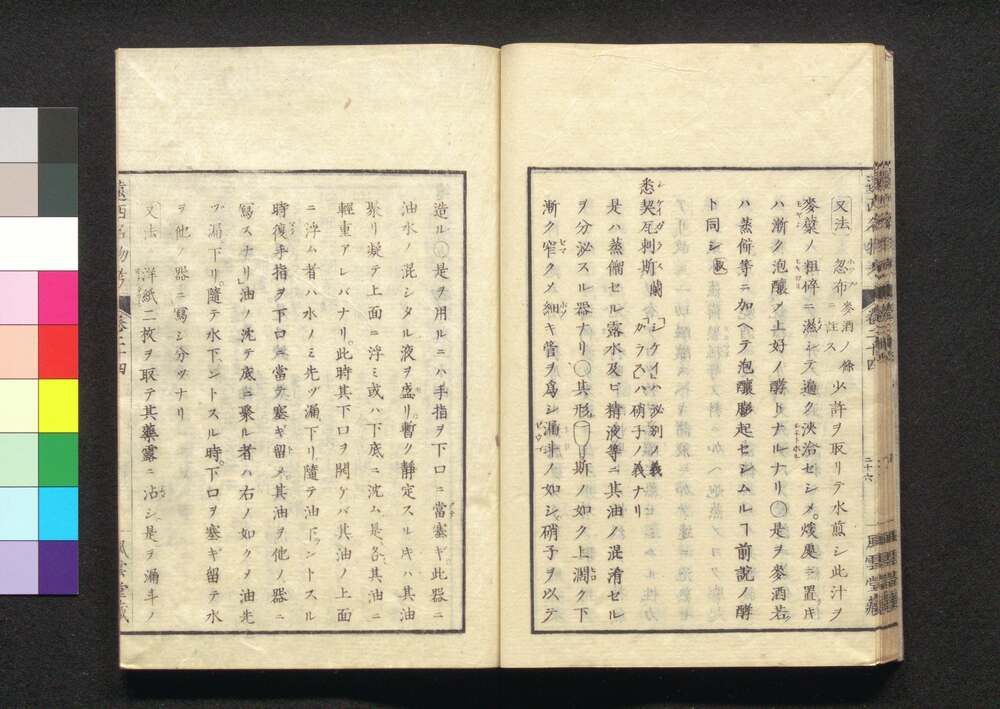 又法 忽布 麥酒ノ條ニ註ス 少許ヲ取リテ水煎シ此汁ヲ
麥蘖ノ粗碎ニ蒸シテ適ク浹洽セシメ。煖處ニ置キ
ハ漸ク泡釀メ上好ノ酵トナルナリ○是ヲ麥酒若
ハ蒸餅等ニ加ヘテ泡釀膨起セシムルヿ前説ノ酵
ト同シ
悉契瓦刺斯 蘭 「シケイ」ハ泌別ノ義「ガラス」ハ硝子ノ義ナリ
是ハ蒸餾セル露水及ヒ精液等ニ其油ノ混淆セル
ヲ分泌スル器ナリ○其形 斯ノ如ク上濶ク下
漸ク窄クメ細キ管ヲ爲シ漏斗ノ如シ硝子ヲ以テ
卷二十四
二十六
風雲堂藏
造ル○是ヲ用ルニハ手指ヲ下口ニ當塞キ此器ニ
油水ノ混シタル液ヲ盛リ暫ク静定スル片ハ其油
聚リ凝テ上面ニ浮ミ或ハ下底ニ沈ム是各其油ニ
輕重アレバナリ。此時其下口ヲ開ケバ其油ノ上面
ニ浮ム者ハ水ノミ先ヅ漏下リ隨テ油下ントスル
時復手指ヲ下口ニ當テ塞キ留メ。其油ヲ他ノ器ニ
寫スナリ」油ノ沈テ底ニ聚ル者ハ右ノ如クメ油先
ヅ漏下リ。隨テ水下ントスル時。下口ヲ塞ギ留テ水
ヲ他ノ器ニ寫シ分ツナリ
又法 洋紙二枚ヲ取テ其藥露ニ沾シ是ヲ漏斗ノ
遠西名物考
卷二十四